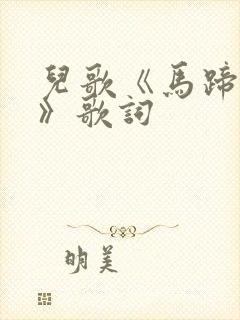 兒歌《馬蹄
》歌詞
明美